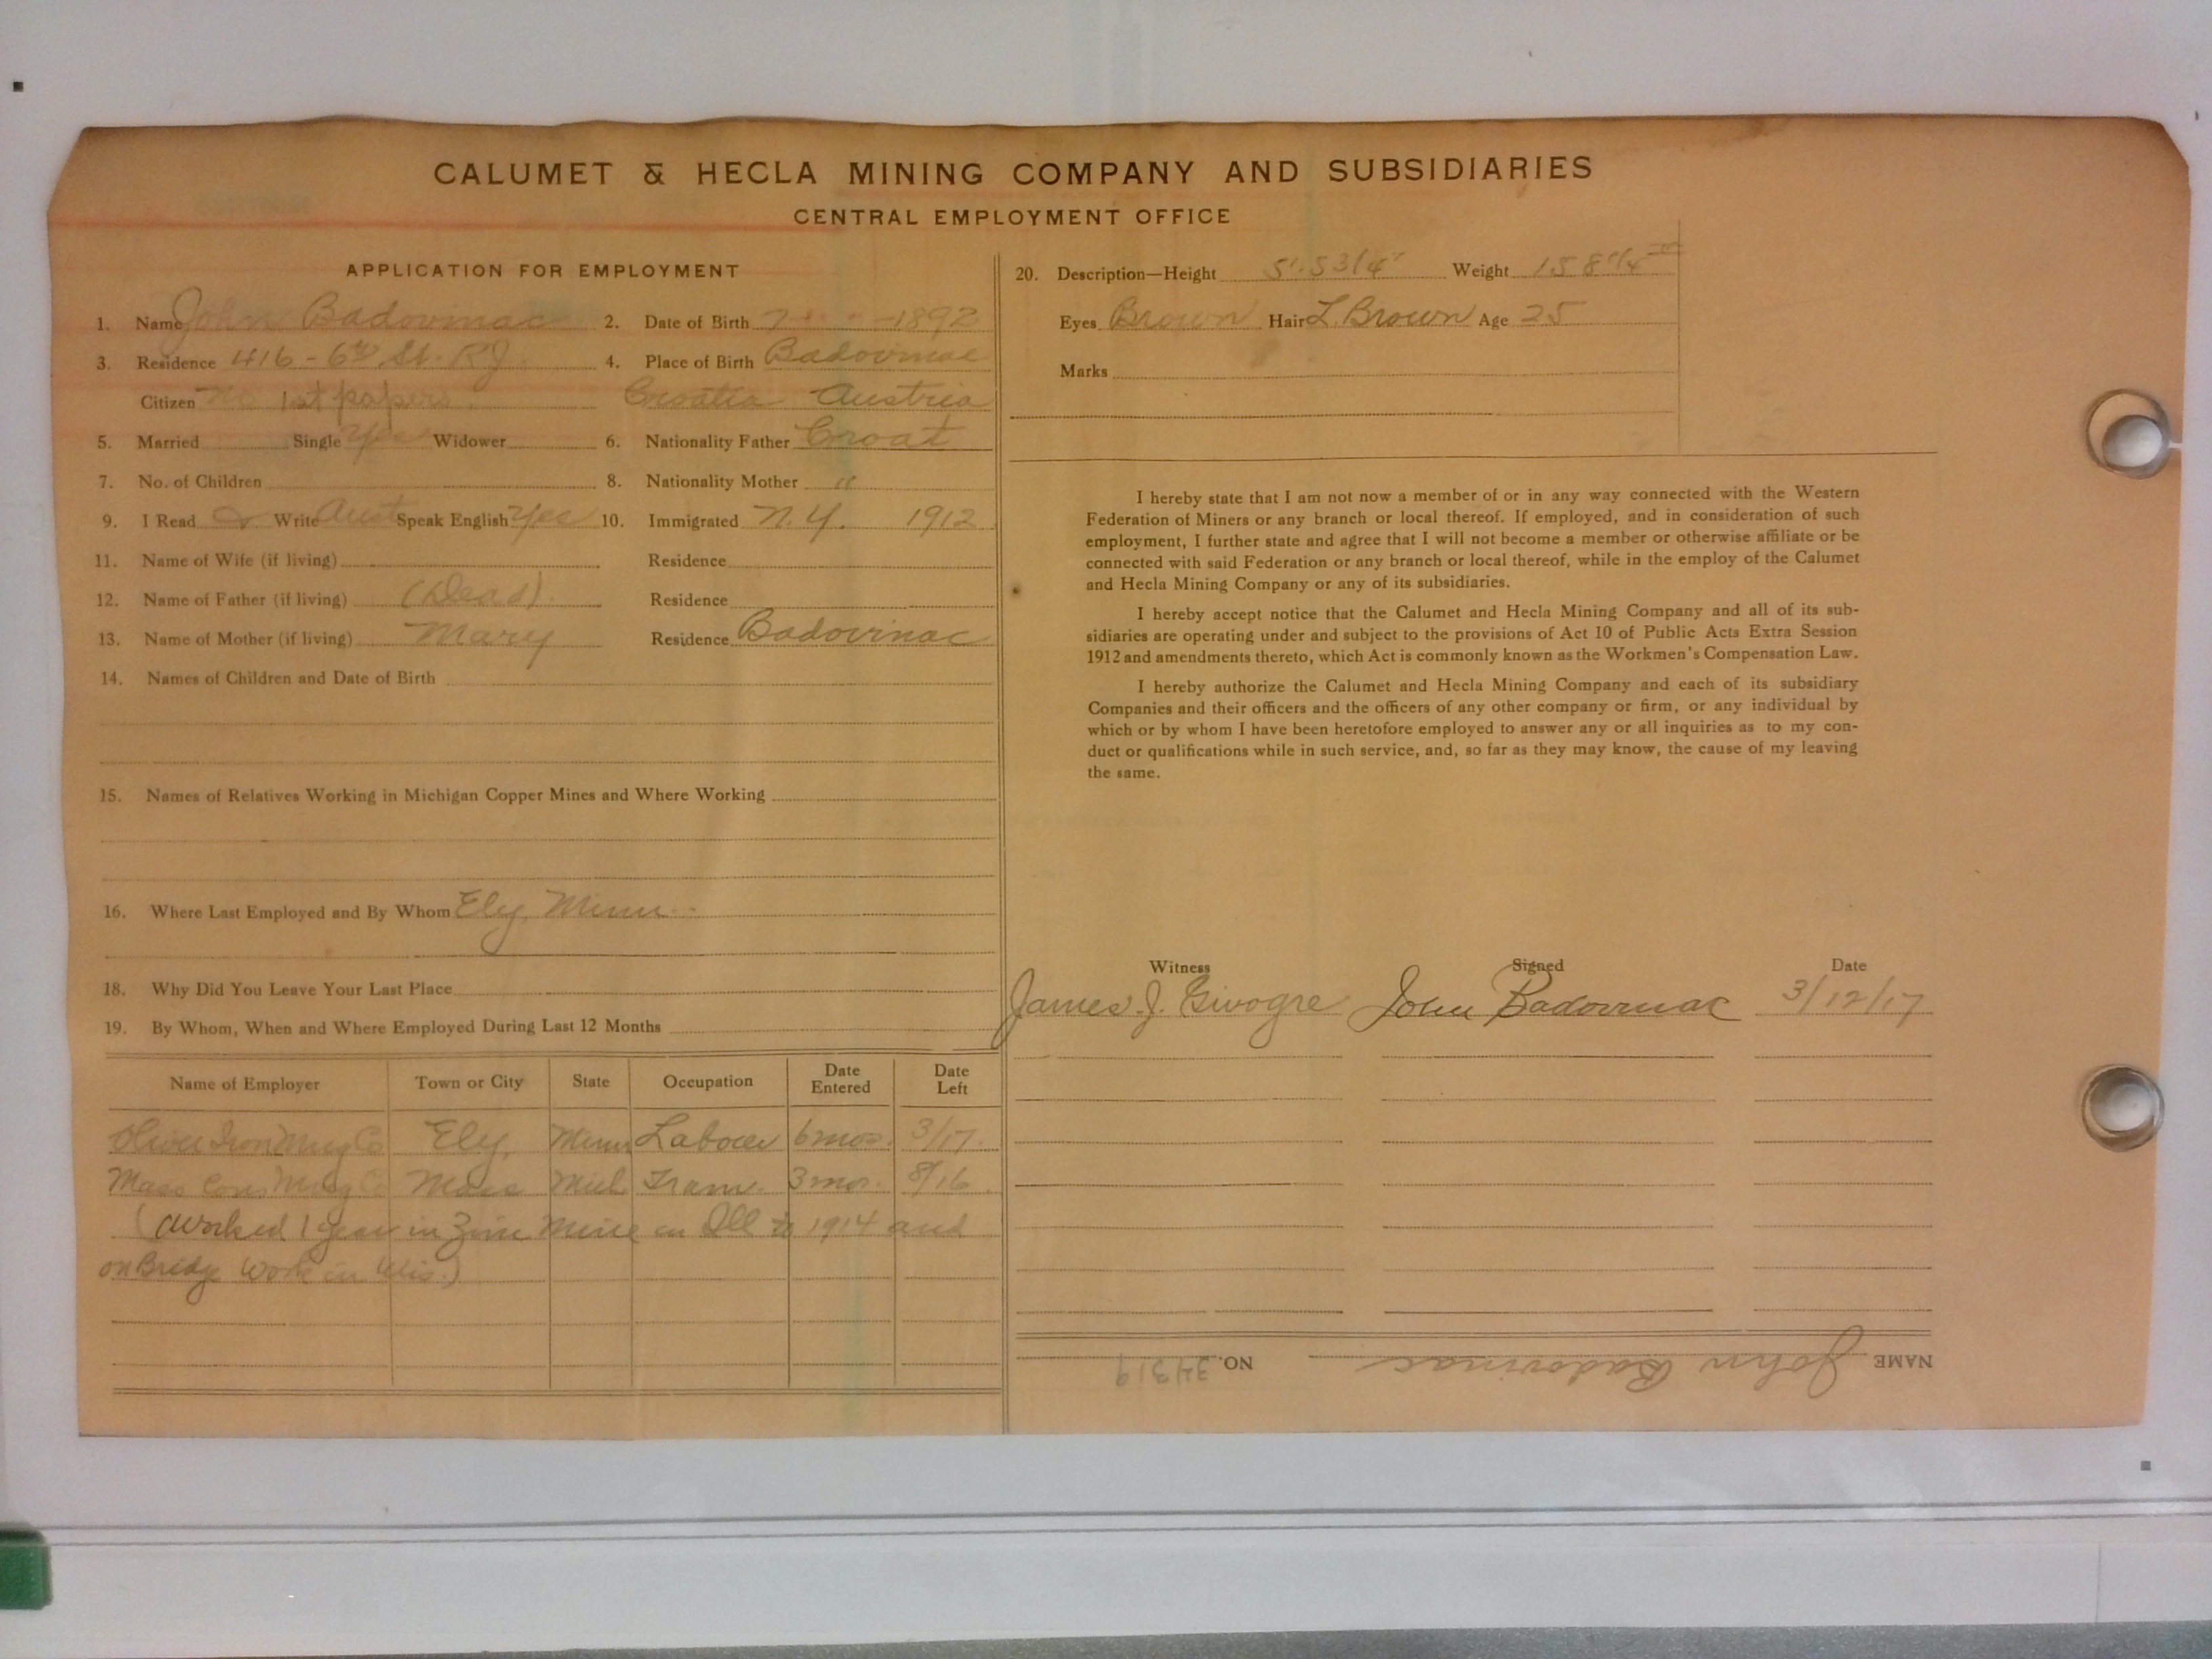 CALUMET & HECLA MINING COMPANY AND SUBSIDIARIES
CENTRAL EMPLOYMENT OFFICE
APPLICATION FOR EMPLOYMENT
1. Name John Badovinac 2. Date of Birth 7 - -1892
3. Residence 416 - 6th St. RJ. 4. Place of Birth Badovinac
Citizen No 1st papers. Croatia Austria
5. Married Single Yes Widower 6. Nationality Father Croat
7. No. of Children 8. Nationality Mother "
9. I Read & Write Aust Speak English Yes 10. Immigrated N.Y. 1912
11. Name of Wife (if living) Residence
12. Name of Father (if living) (Dead). Residence
13. Name of Mother (if living) Mary Residence Badovinac
14. Names of Children and Date of Birth
15. Names of Relatives Working in Michigan Copper Mines and Where Working
16. Where Last Employed and By Whom Ely, Minn.
18. Why Did You Leave Your Last Place
19. By Whom, When and Where Employed During Last 12 Months
Name of Employer Town or City State Occupation Date Entered Date Left
Oliver Iron Mng Co Ely, Minn Labour 6 mos. 3/17.
Mass Cons Mng Co Mass Mich Tram. 3 mos. 8/16.
(Worked 1 year in Zinc Mine in Ill to 1914 and
on Bridge Work in Wis.)
20. Description—Height 5'.5 3/4" Weight 158
Eyes Brown Hair L. Brown Age 25
Marks
I hereby state that I am not now a member of or in any way connected with the Western
Federation of Miners or any branch or local thereof. If employed, and in consideration of such
employment, I further state and agree that I will not become a member or otherwise affiliate or be
connected with said Federation or any branch or local thereof, while in the employ of the Calumet
and Hecla Mining Company or any of its subsidiaries.
I hereby accept notice that the Calumet and Hecla Mining Company and all of its sub-
sidiaries are operating under and subject to the provisions of Act 10 of Public Acts Extra Session
1912 and amendments thereto, which Act is commonly known as the Workmen's Compensation Law.
I hereby authorize the Calumet and Hecla Mining Company and each of its subsidiary
Companies and their officers and the officers of any other company or firm, or any individual by
which or by whom I have been heretofore employed to answer any or all inquiries as to my con-
duct or qualifications while in such service, and, so far as they may know, the cause of my leaving
the same.
Witness Signed Date
James. J. Givogre John Badovinac 3/12/17
NAME John Badovinac NO. 34319